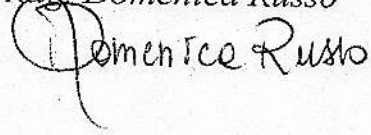 Domenica Russo
Domenica Russo